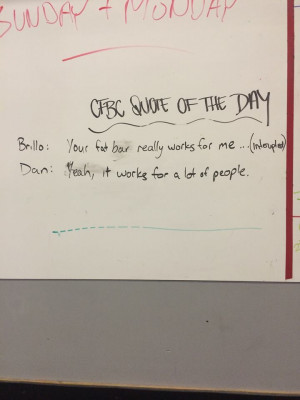 SUNDAY + MONDAY
CFBC QUOTE OF THE DAY
Brillo: Your fat bar really works for me ... (interrupted)
Dan: Yeah, it works for a lot of people.